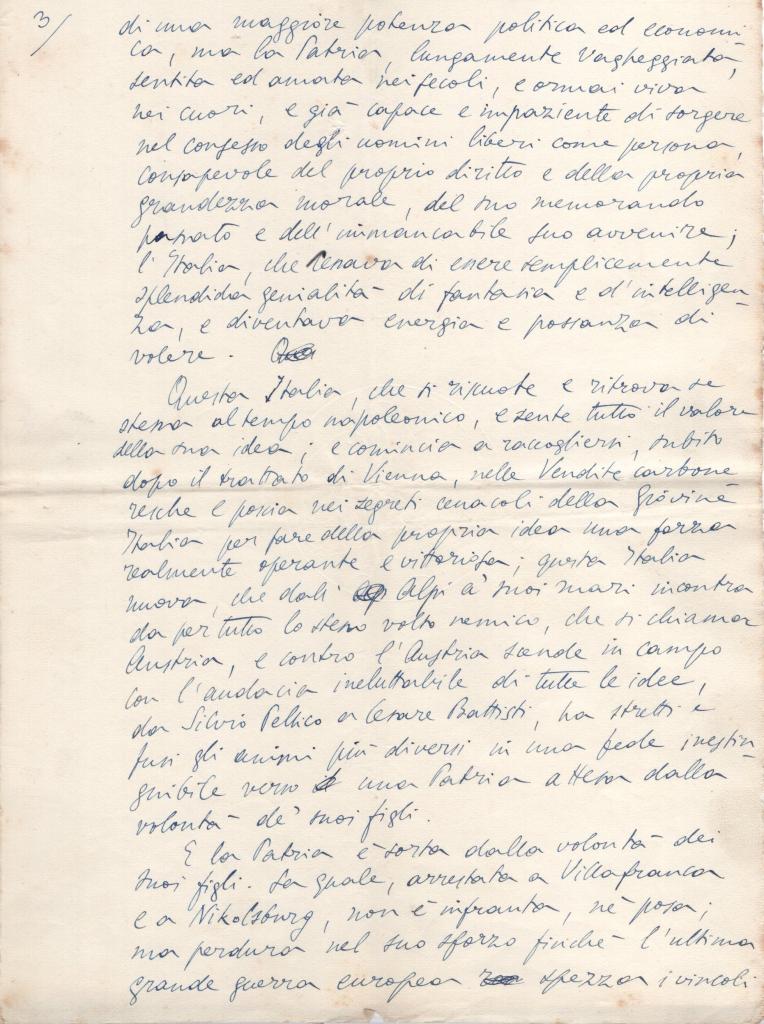 3/
di una maggiore potenza politica ed economi-
ca, ma la Patria, lungamente vagheggiata,
sentita ed amata nei secoli, e ormai viva
nei cuori, e già capace e impaziente di sorgere
nel consesso degli uomini liberi come persona,
consapevole del proprio diritto e della propria
grandezza morale, del suo memorando
passato e dell'immancabile suo avvenire;
l'Italia, che cessava di essere semplicemente
splendida genialità di fantasia e d'intelligen-
za, e diventava energia e possanza di
volere.
Questa Italia, che si riscuote e ritrova se
stessa al tempo napoleonico, e sente tutto il valore
della sua idea; e comincia a raccogliersi, subito
dopo il trattato di Vienna, nelle Vendite carbone
resche e poscia nei segreti cenacoli della Giovine
Italia per fare della propria idea una forza
realmente operante e vittoriosa; questa Italia
nuova, che dall' Alpi a' suoi mari incontra
da per tutto lo stesso volto nemico, che si chiama
Austria, e contro l'Austria scende in campo
con l'audacia ineluttabile di tutte le idee,
da Silvio Pellico a Cesare Battisti, ha stretti e
fusi gli animi più diversi in una fede inestin-
guibile verso una Patria attesa dalla
volontà de' suoi figli.
E la Patria è sorta dalla volontà dei
suoi figli. La quale, arrestata a Villafranca
e a Nikolsburg, non è infranta, nè posa;
ma perdura nel suo sforzo finchè l'ultima
grande guerra europea spezza i vincoli